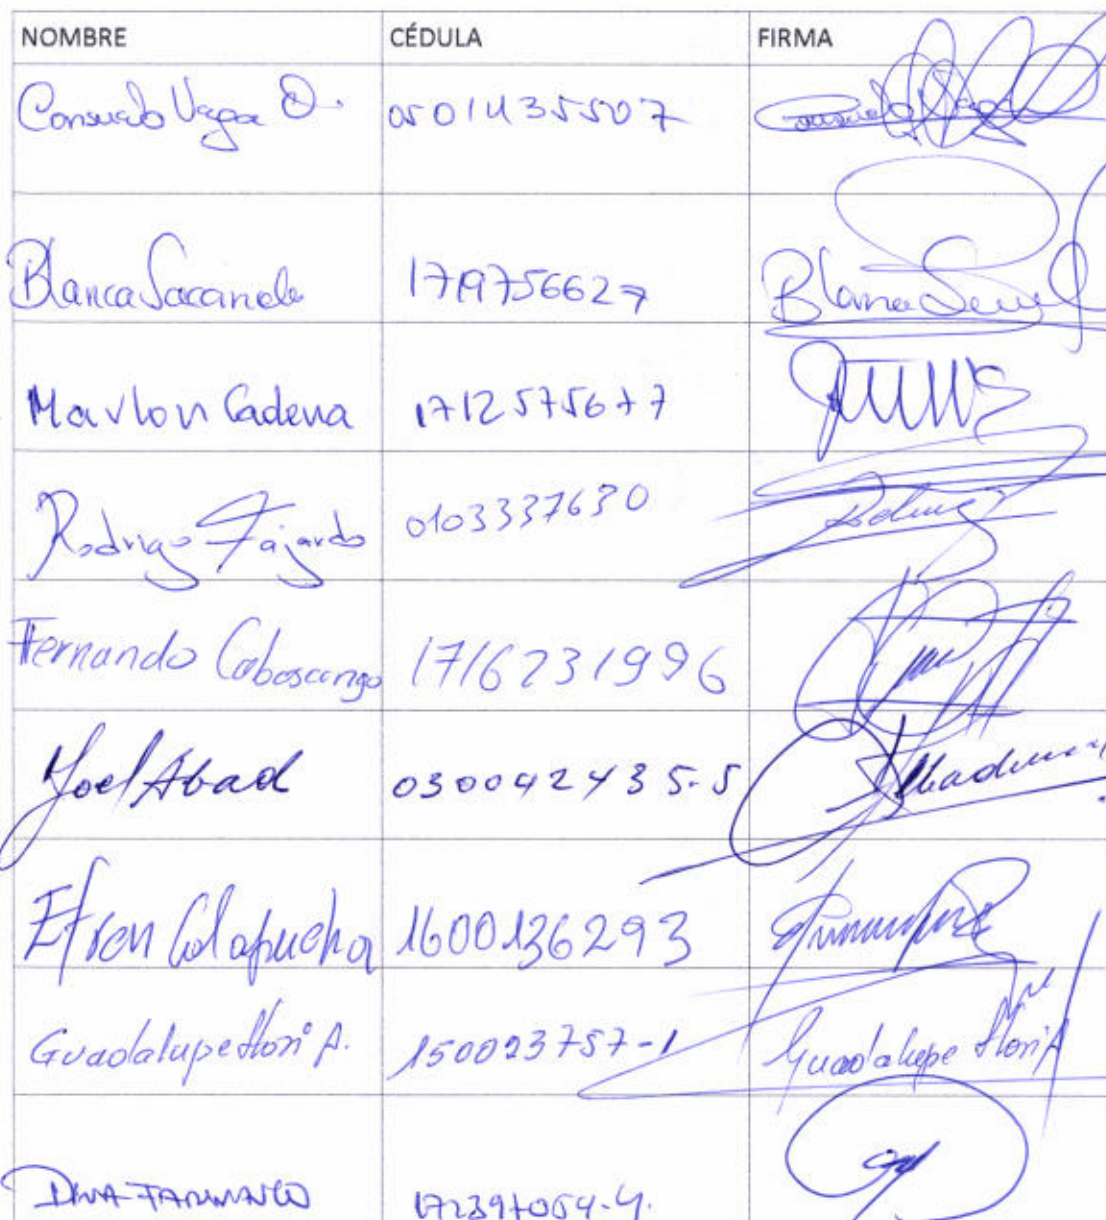 NOMBRE CÉDULA FIRMA
Consuelo Vega O. 0501435507
Blanca 1719756627 Blanca
Marlon Cadena 1712575677
Rodrigo Fajardo 0103337630
Fernando Cabascango 1716231996
Joel Abad 030042435-5
Efren Calapucha 1600136293
Guadalupe Llori A. 150023757-1 Guadalupe Llori A